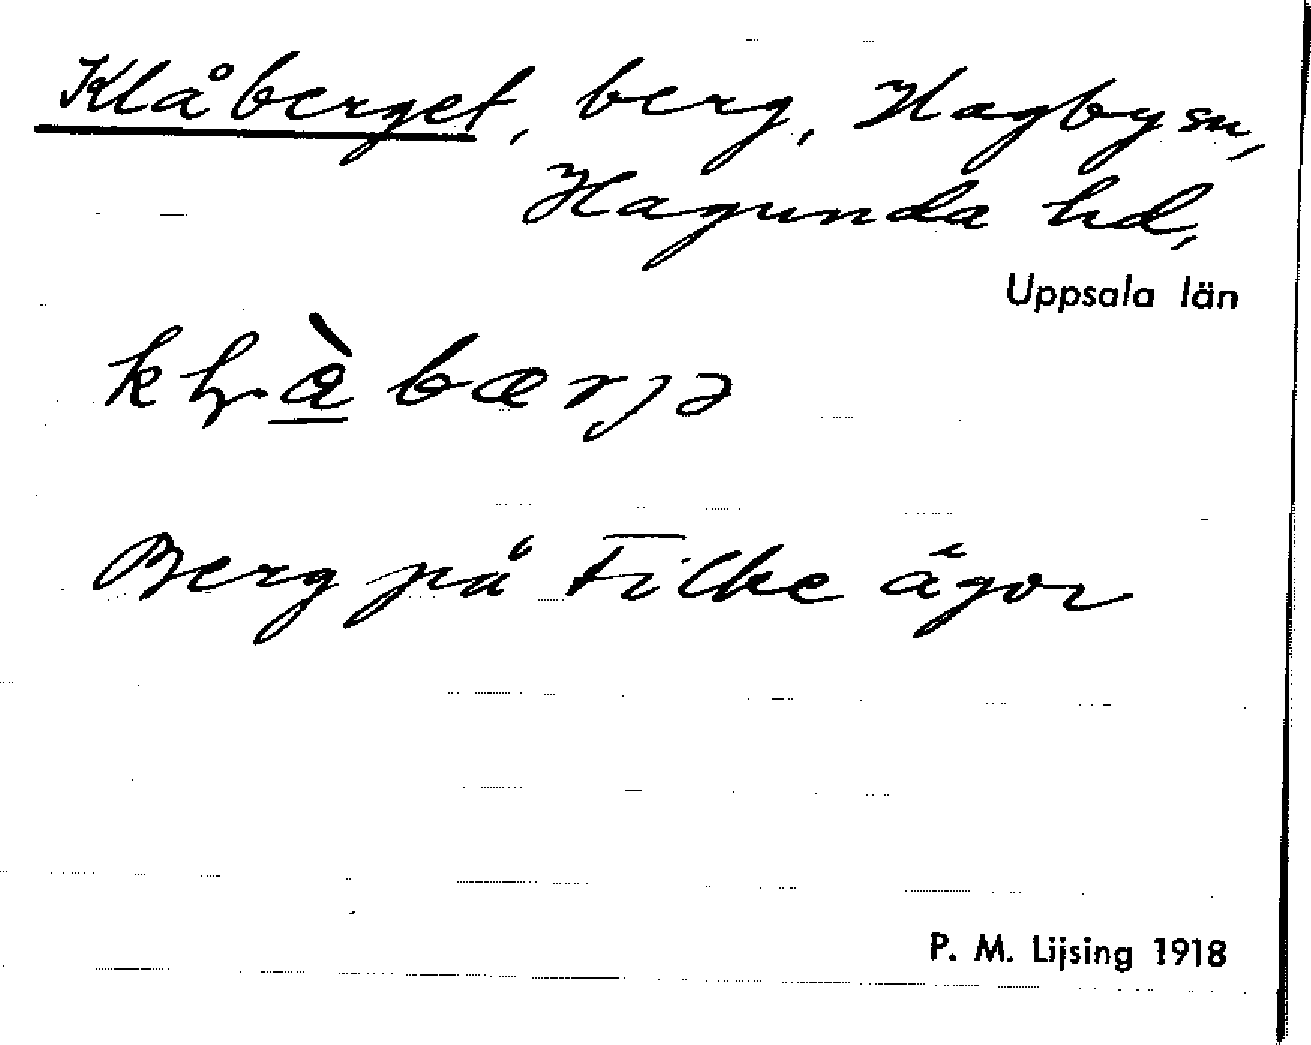 Klåberget, berg, Hagby sn,
Hagunda hd,
Uppsala län
bærjə
Berg på Filke ägor
P. M. Lijsing 1918